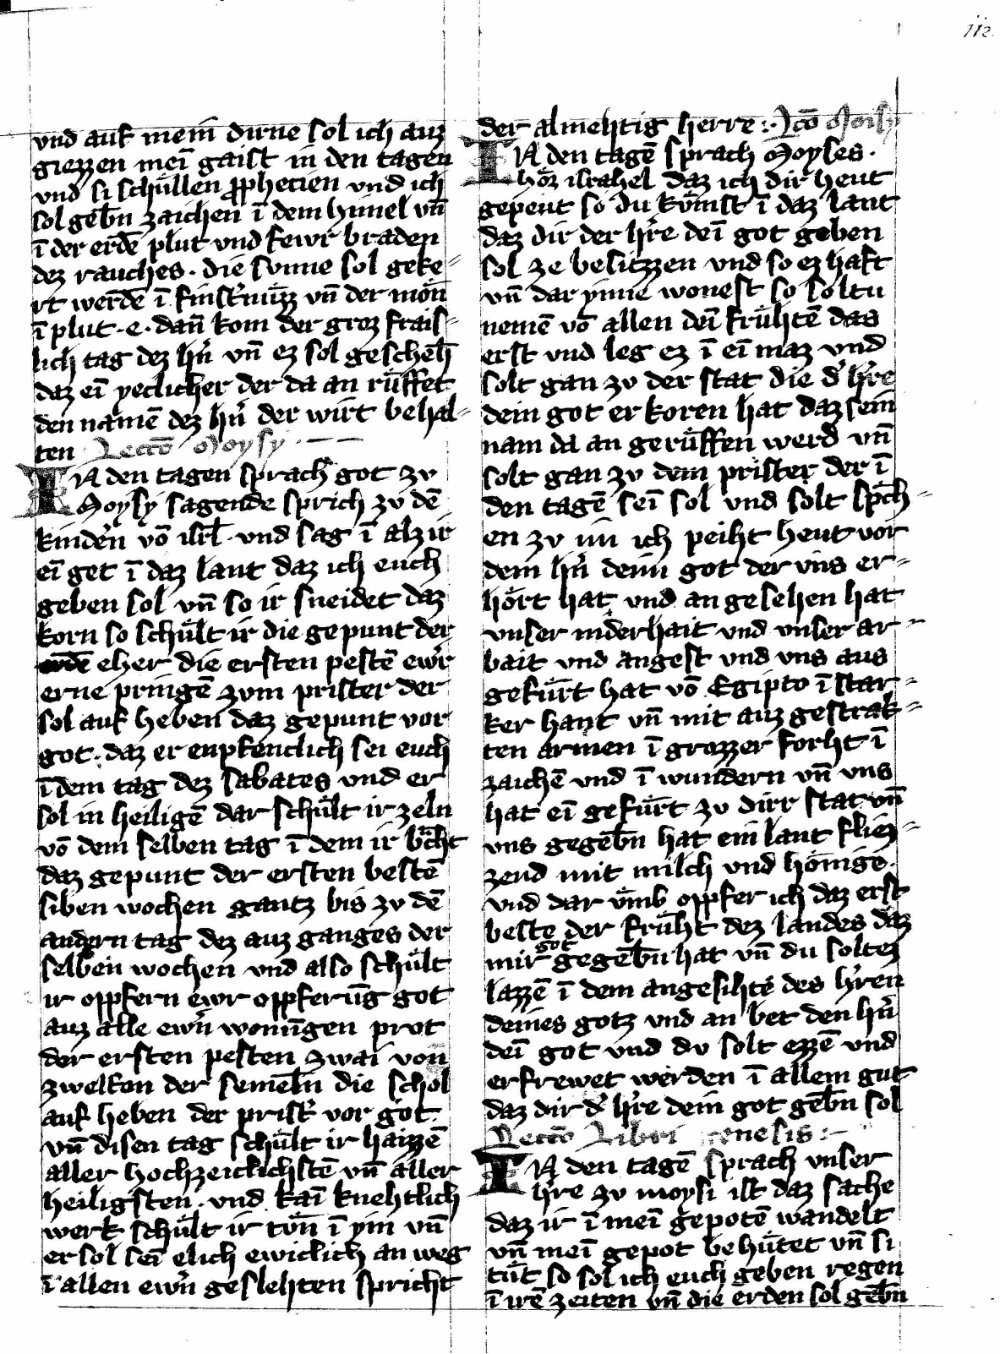 und auf mein̄ dirne sol ich auz
giezzen mei᷑ gaist in den tagen
und si schu̇llen ꝓphecien und ich
sol geb̄n zaichen ī dem himel un̄
ī der erdē plut und fewr̄ braden
dez rauches · die sunne sol geke-
rt werdē ī finst'nu̇zz un̄ der mon̄
ī plut · e · dan̄ kom der groz frais-
lich tag dez hr̄n un̄ ez sol geschēh
daz eī yeclicher der da an ru̇ffet
den namē dez hr̄n der wirt behal-
ten Leccō Moysy
IN den tagen sprach got zu
Moysy sagende sprich zu dē
kindern vō isrl̄ · und sag ī alz ir
eī get ī daz lant daz ich euch
geben sol un̄ so ir sneidet daz
korn so schu̇lt ir die gepunt der
eher die ersten pestē ewr̄
erne pringē zum prister der
sol auf heben daz gepunt vor
got · daz er enpfenclich sei euch
ī dem tag dez sabates und er
sol in heiligē dar schu̇lt ir zeln
vō dem selben tag ī dem ir br̄cht
daz gepunt der ersten bestē
siben wochen gantz bis zu dē
andern tag dez auz ganges der
selben wochen und also schu̇lt
ir oppfern ewr oppferūg got
auz alle ewr̄n wonūgen prot
der ersten pesten zwai von
zwelfon der semelū die schol
auf heben der prist' vor got ·
un̄ disen tag schu̇lt ir haizzē
aller hochzeiclichstē un̄ aller
heiligsten · und kaī knehtlich
werk schu̇lt ir tu̇n ī ym un̄
er sol sei elich ewiclich an weg
ī allen ewr̄n geslehten spricht
der almehtig herre : Lcō Moisy
IN den tagē sprach Moyses ·
ho̊r israhel daz ich dir heut
gepeut so du ku̇mst ī daz lant
daz dir der hr̄re deī got geben
sol ze besitzzen und so ez haft
un̄ dar ynne wonest so soltu
nemē vō allen deī fru̇htē das
erst und leg ez ī eī maz und
solt gan zu der stat die d' hr̄re
dein got er koren hat daz sein
nam da an geru̇ffen werd un̄
solt gan zu dem prister der ī
den tagē seī sol und solt sp̄ch-
en zu im ich peiht heut vor
dem hr̄n deim got der uns er-
ho̊rt hat und an gesehen hat
unser niderhait und unser ar-
bait und angest und uns aus
gefu̇rt hat vō Egipto ī star-
ker hant un̄ mit auz gestrak-
ten armen ī grozzer forht ī
zaichē und ī wundern un̄ uns
hat eī gefu̇rt zu dirr stat un̄
uns gegeb̄n hat ein lant fliez-
zend mit milch und ho̊nige ·
und dar u̇mb oppfer ich daz erst
beste der fru̇ht dez landes daz
mir got gegeb̄n hat un̄ du soltez
lazzē ī dem angesihte des hr̄ren
deines gotz und an bet den hr̄n
deī got und du solt ezzē und
erfrewet werden ī allem gut
daz dir d' hr̄re dein got geb̄n sol
Leccō Libri Genesis :
IN den tagē sprach unser
hr̄re zu moysi ist daz sache
daz ir ī meī gepotē wandelt
un̄ meī gepot behu̇tet un̄ si
tu̇t so sol ich euch geben regen
ī irē zeiten un̄ die erden sol geb̄n